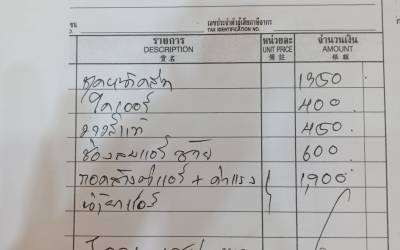 ชน เลขประจำตัวผู้เสียภาษีอากร
TAX IDENTIFICATION NO.
รายการ หน่วยละ จำนวนเงิน
DESCRIPTION UNIT PRICE AMOUNT
貨名 備註 銀額
1350
ไดเออร์ 400
วาล์วแท้ 450
ช่องลมแอร์ ซ้าย 600
ถอดล้างตู้แอร์ + ค่าแรง 1,900
น้ำยาแอร์